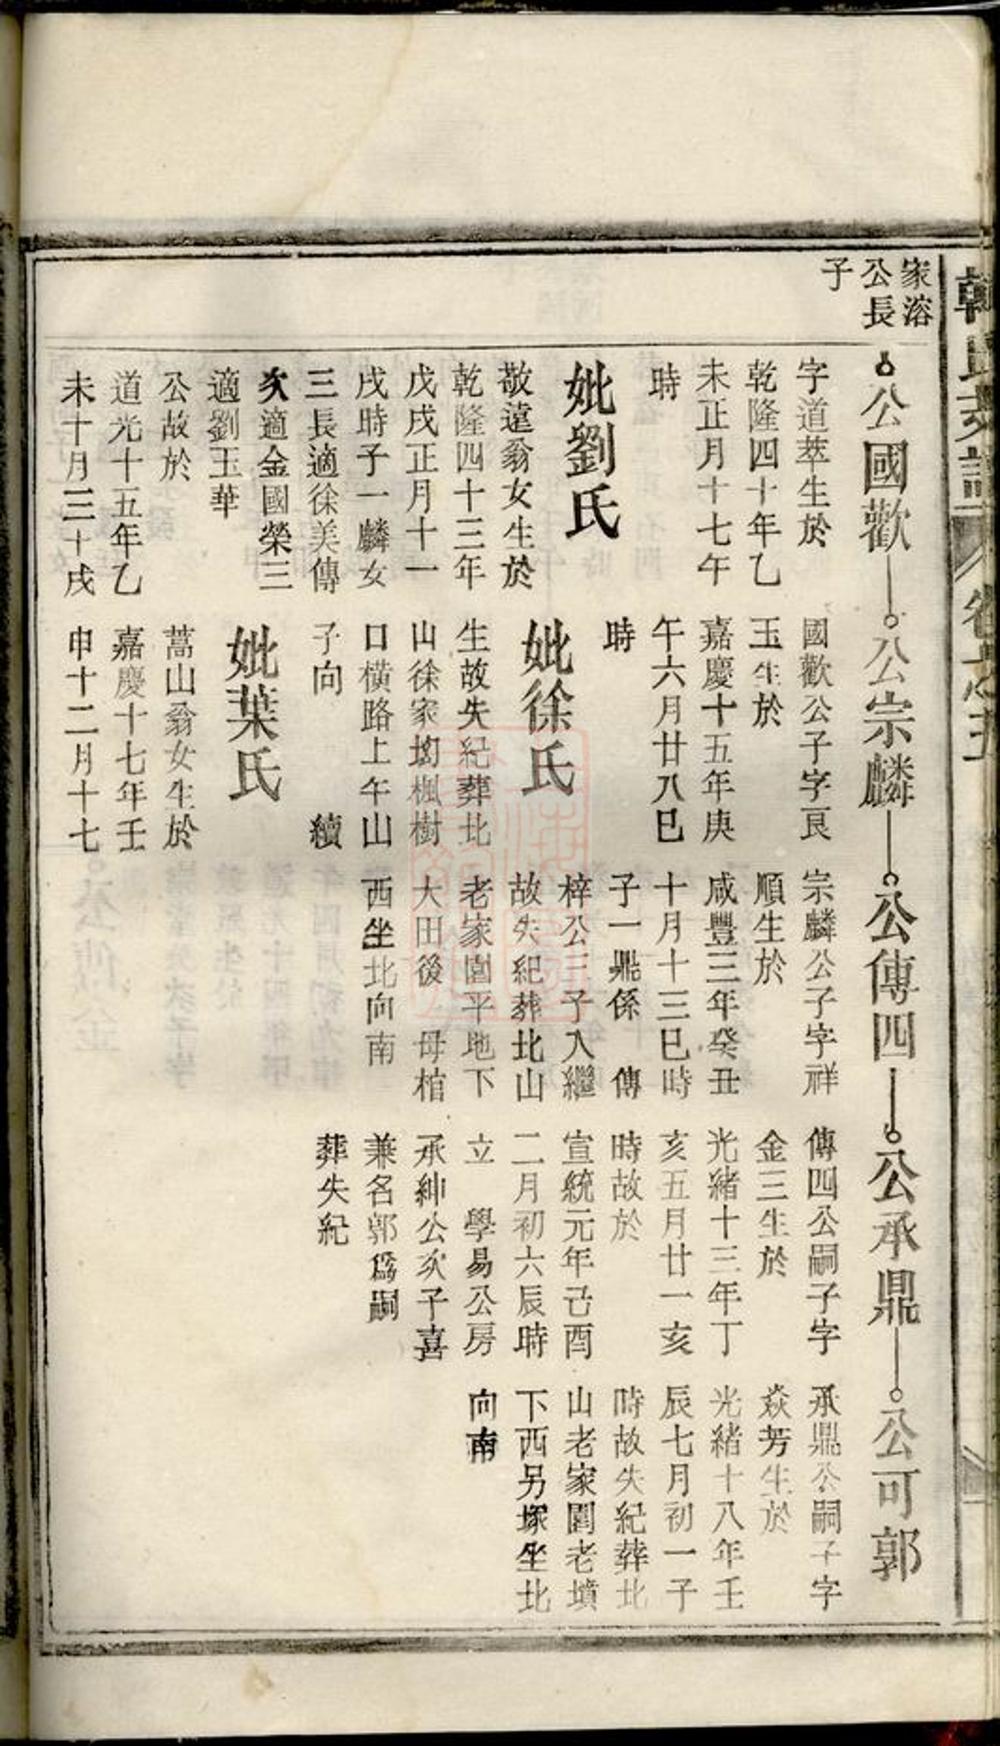 家溶
公長
子
公國歡
字道萃生於
乾隆四十年乙
未正月十七午
時
妣劉氏
敬遠翁女生於
乾隆四十三年
戊戌正月十一
戌時子一麟女
三長適徐美傳
次適金國榮三
適劉玉華
公故於
道光十五年乙
未十月三十戌
公宗麟
國歡公子字艮
玉生於
嘉慶十五年庚
午六月廿八巳
時
妣徐氏
生故失紀葬北
山徐家坳楓樹
口橫路上午山
子向 續
妣葉氏
蒿山翁女生於
嘉慶十七年壬
申十二月十七
公傳四
宗麟公子字祥
順生於
咸豐三年癸丑
十月十三巳時
子一鼎係 傳
梓公三子入繼
故失紀葬北山
老家園平地下
大田後 母棺
西坐北向南
公承鼎
傳四公嗣子字
金三生於
光緒十三年丁
亥五月廿一亥
時故於
宣統元年己酉
二月初六辰時
立 學易公房
承紳公次子喜
兼名郭爲嗣
葬失紀
公可郭
承鼎公嗣子字
焱芳生於
光緒十八年壬
辰七月初一子
時故失紀葬北
山老家園老墳
下西另塚坐北
向南